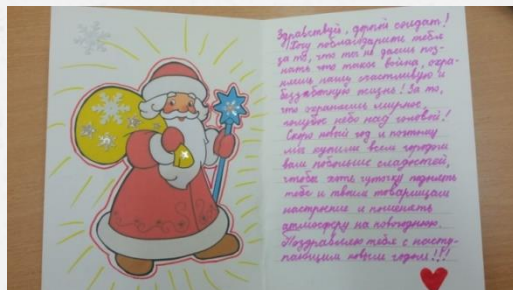 Здравствуй, дорогой солдат!
Хочу поблагодарить тебя
за то, что ты не даёшь поз-
нать что такое война, охра-
няешь нашу счастливую и
беззаботную жизнь! За то,
что охраняешь мирное,
голубое небо над головой!
Скоро новый год и поэтому
мы купили всем городом
вам побольше сладостей,
чтобы хоть чуточку поднять
тебе и твоим товарищам
настроение и поменять
атмосферу на новогоднюю.
Поздравляю тебя с насту-
пающим новым годом!!!